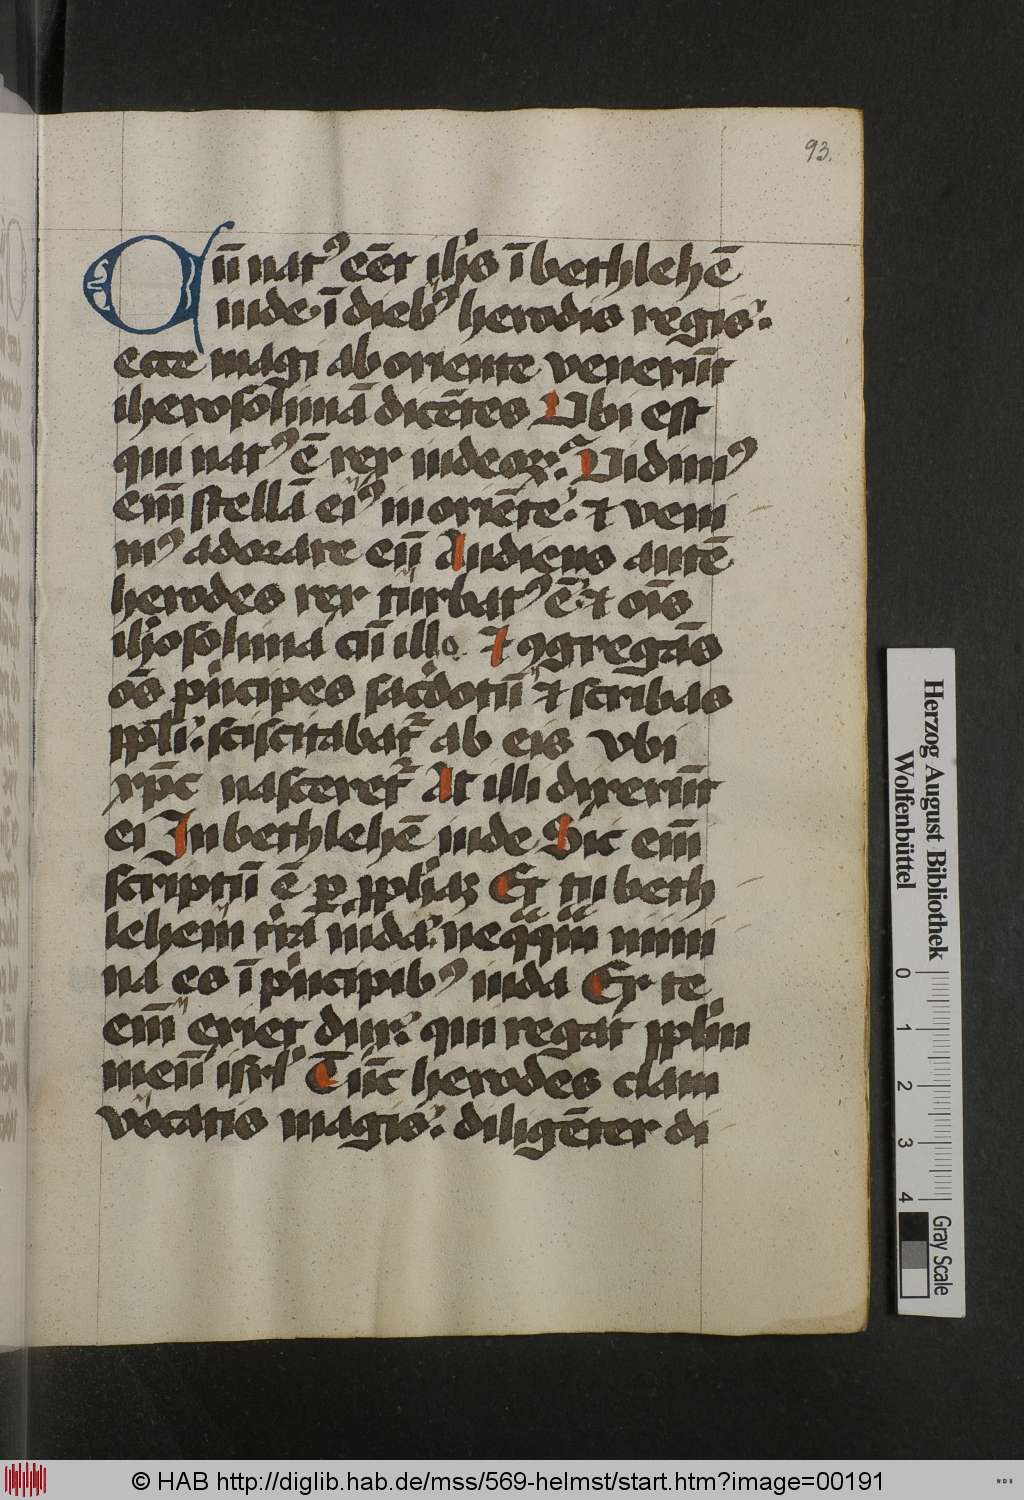 93.
Cū natꝰ eēt ihs ī bethlehē
iude· ī diebꝰ herodis regis·
ecce magi ab oriente venerūt
iherosolimā dicētes Vbi est
qui natꝰ ē rex iudeoꝝ· Vidimꝰ
em̄ stellā eiꝰ in oriēte· ⁊ veni
mꝰ adorare eū Audiens autē
herodes rex turbatꝰ ē· ⁊ oīs
ihosolima cū illo ⁊ ꝯgregās
oēs pͥncipes sacͥdotū ⁊ scribas
ppli· sciscitabat᷑ ab eis vbi
xp̄c nasceret᷑ At illi dixerūt
ei In bethlehē iude Sic em̄
scriptū ē ꝑ pphaꝫ Et tu beth
lehem tr̄a iuda· neqͣqͣm mini
na es ī pͥncipibꝰ iuda Ex te
em̄ exiet dux· qui regat pplm
meū isrl Tūc herodes clam
vocatis magis· diligēter di
Herzog August Bibliothek
Wolfenbüttel
0 1 2 3 4
Gray Scale
© HAB http://diglib.hab.de/mss/569-helmst/start.htm?image=00191